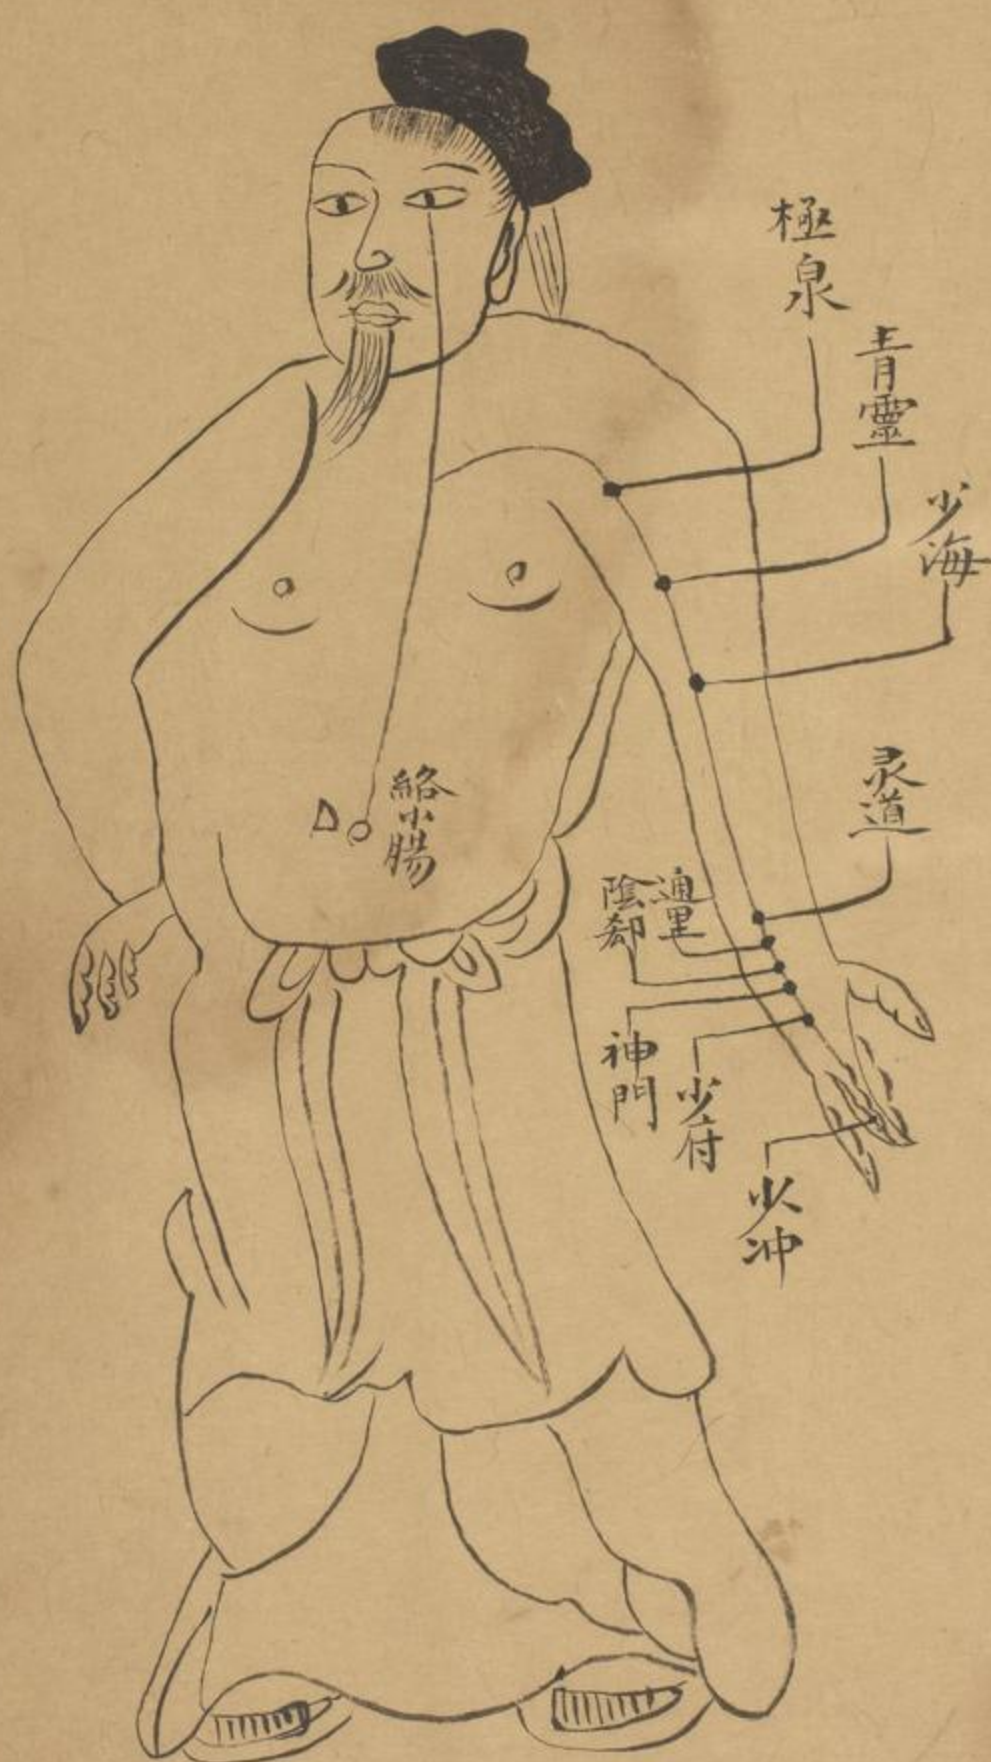 極泉
青靈
少海
灵道
通里
陰郄
神門
少府
少冲
絡小腸